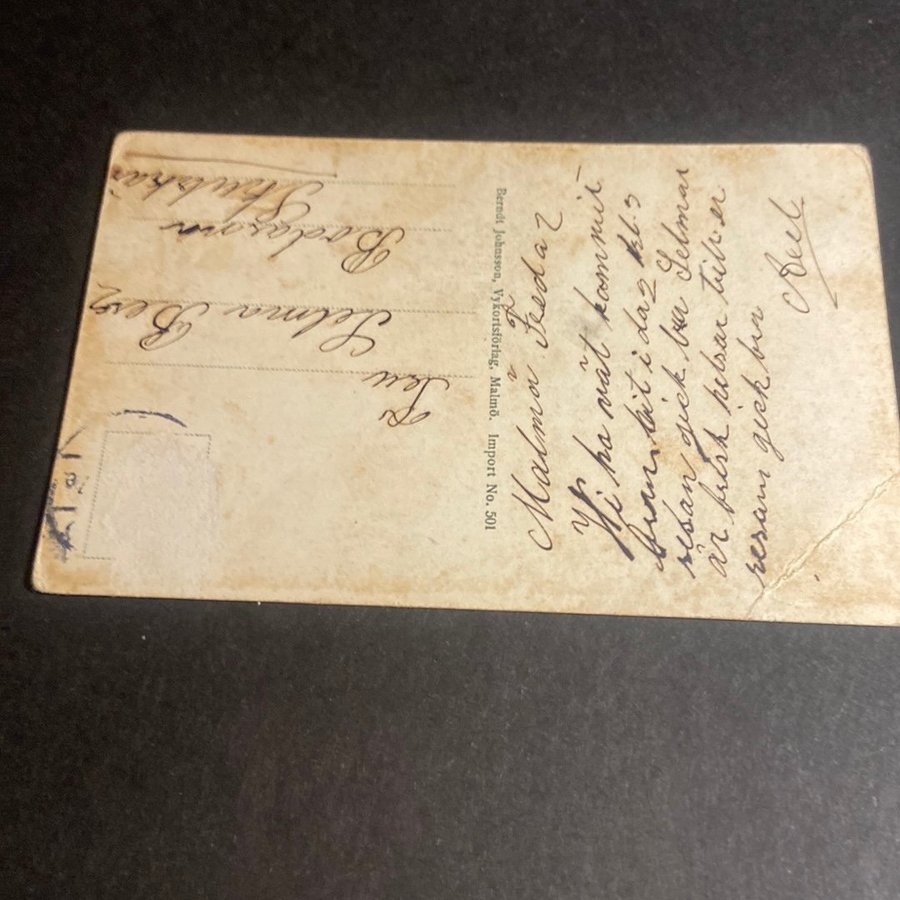 Malmö Fredag
Vi ha nät kommit
fram hit i dag kl. 3
resan gick bra Selma
är frisk helsar till er
resan gick bra
Axel
Berndt Johnsson, Vykortsförlag, Malmö. Import No. 501
Fru
Selma Berg
Bodarna
Skutskär